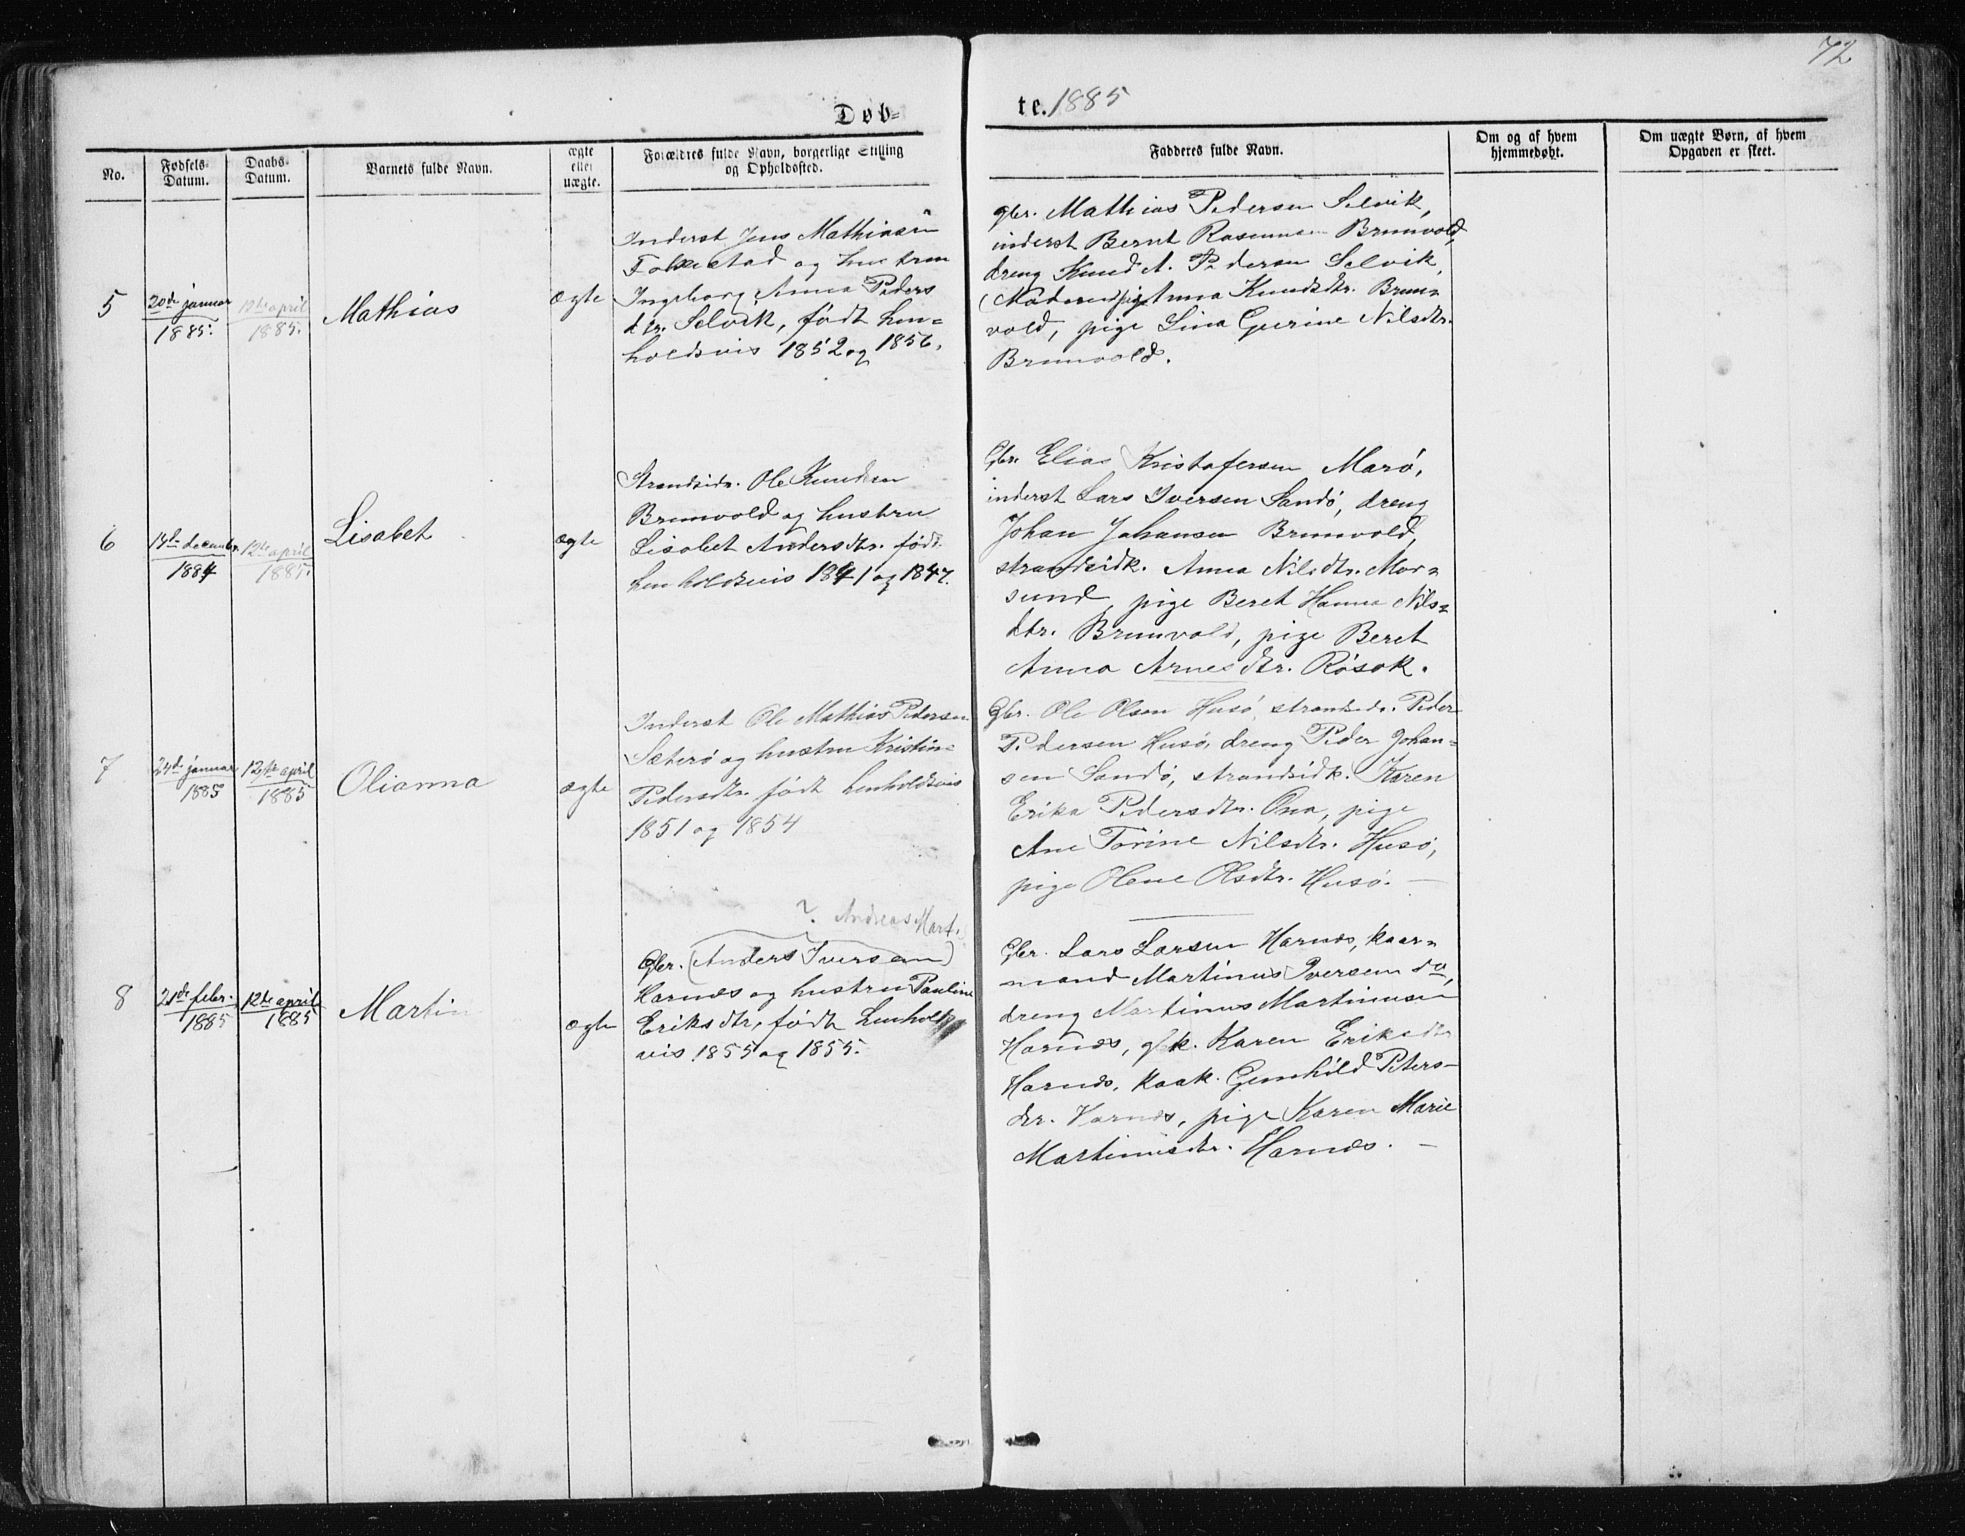 72
Døb=
te. 1885
No.
Fødsels-
Datum.
Daabs-
Datum.
Barnets fulde Navn.
ægte
eller
uægte.
Forældres fulde Navn, borgerlige Stilling
og Opholdssted.
Fadderes fulde Navn.
Om og af hvem
hjemmedøbt.
Om uægte Børn, af hvem
Opgaven er skeet.
5
20de januar
1885.
12te april
1885.
Mathias
ægte
Inderst Jens Mathiasen
Folkestad og hustru
Ingeborg Anna Peders
dtr. Selvik, født hen=
holdsvis 1852 og 1856.
gbr. Mathias Pedersen Selvik,
inderst Bernt Rasmussen Brunvold,
dreng Knud A. Pedersen Selvik,
pige Anna Knudsdtr. Brun=
vold, pige Lina Gurine Nilsdtr.
Brunvold.
6
14de decembr.
1884
12te april
1885.
Lisabet
ægte
Strandsidr. Ole Knudsen
Brunvold og hustru
Lisabet Andersdtr. født
henholdsvis 1841 og 1847.
Gbr. Elias Kristofersen Marø,
inderst Lars Iversen Sandø, dreng
Johan Johansen Brunvold,
strandsidk. Anna Nilsdtr. Mor=
sund, pige Beret Hanna Nils=
dtr. Brunvold, pige Beret
Anna Arnesdtr. Røsok.
7
24de januar
1885
12te april
1885
Olianna
ægte
Inderst Ole Mathias Pedersen
Sæterø og hustru Kristin=
Pedersdtr. født henholdsvis
1851 og 1854
Gbr. Ole Olsen Husø, strandsidr. Peder
Pedersen Husø, dreng Peder Johan=
sen Sandø, strandsidk. Karen
Erika Pedersdtr. Ona, pige
Ane Torine Nilsdtr. Husø,
pige Olene Olsdtr. Husø. —
8
21de febr.
1885
12te april
1885
Martin
ægte
? Andreas Mart.
Gbr. (Anders Iversen)
Harnæs og hustru Pauline
Eriksdtr, født henholds
vis 1855 og 1855.
Gbr. Lars Larsen Harnæs, kaar=
mand Martinus Iversen do,
dreng Martinus Martinusen
Harnæs, gbk. Karen Eriksdtr
Harnæs, kaak. Gunhild Peters=
dtr. Harnæs, pige Karen Marie
Martinusdtr. Harnæs. —